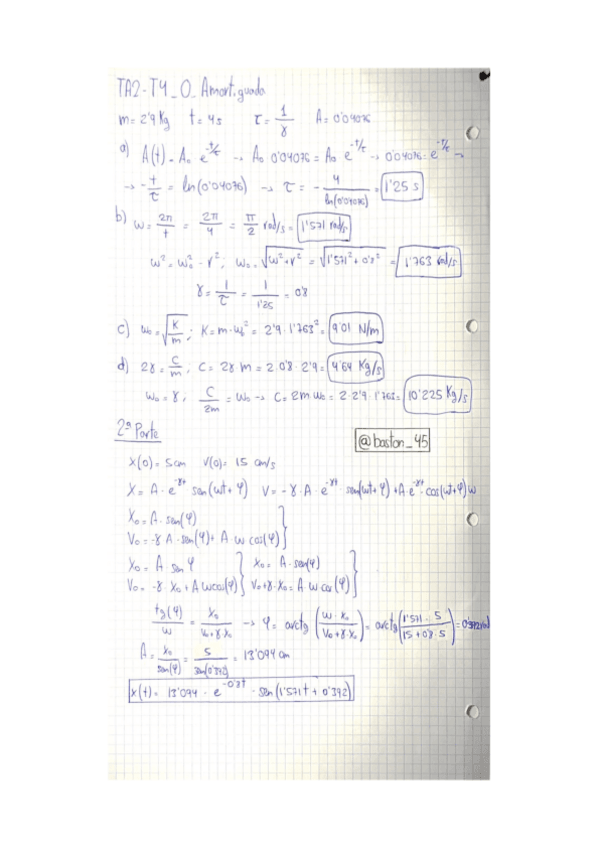 TA2-T4_O_Amortiguada
m=2'9 Kg t=4s τ=1/γ A=0'04076
a) A(t)=A₀ e^(-t/τ) → A₀ 0'04076=A₀ e^(-t/τ) → 0'04076=e^(-t/τ) →
→ -t/τ = ln(0'04076) → τ = -4/ln(0'04076) = 1'25 s
b) ω=2π/t = 2π/4 = π/2 rad/s = 1'571 rad/s
ω²=ω₀²-γ²; ω₀=√(ω²+γ²) = √(1'571²+0'8²) = 1'763 rad/s
γ=1/τ = 1/1'25 = 0'8
c) ω₀=√(K/m); K=m·ω₀² = 2'9·1'763² = 9'01 N/m
d) 2γ=C/m; C=2γm = 2·0'8·2'9 = 4'64 Kg/s
ω₀=γ; C/2m = ω₀ → C=2mω₀ = 2·2'9·1'763 = 10'225 Kg/s
2ª Parte
@baston_45
X(0)=5cm V(0)=15 cm/s
X=A·e^(-γt) sen(ωt+φ) V=-γ·A·e^(-γt) sen(ωt+φ)+A·e^(-γt)·cos(ωt+φ)ω
X₀=A·sen(φ)
V₀=-γA·sen(φ)+A ω cos(φ)
X₀=A sen φ X₀=A·sen(φ)
V₀=-γ·X₀+Aωcos(φ) V₀+γ·X₀=A·ω cos(φ)
tg(φ)/ω = X₀/(V₀+γX₀) → φ=arctg(ω·X₀/(V₀+γ·X₀)) = arctg(1'571·5/(15+0'8·5)) = 0'392rad
A=X₀/sen(φ) = 5/sen(0'392) = 13'094 cm
x(t)=13'094·e^(-0'8t)·sen(1'571t+0'392)